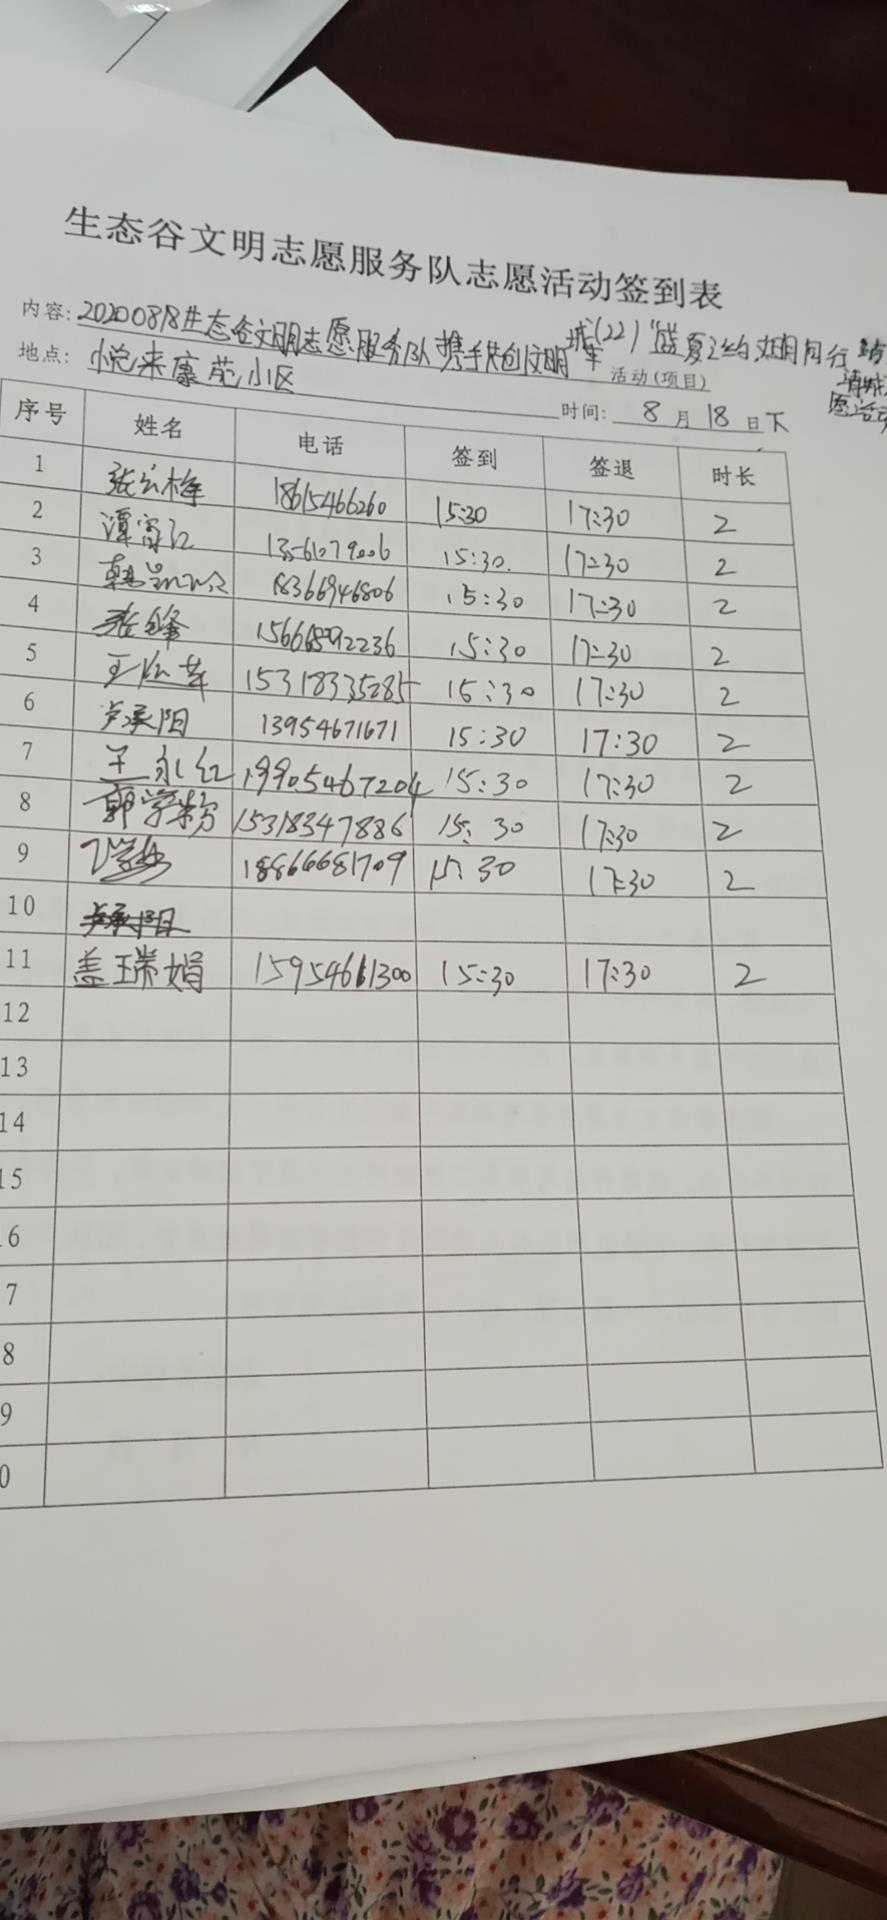 生态谷文明志愿服务队志愿活动签到表
内容: 20200818生态谷文明志愿服务队携手共创文明城(22)"盛夏之约 文明同行
地点: 悦来康苑小区 活动(项目)
时间: 8月18日下
序号 姓名 电话 签到 签退 时长
1 18615466260 15:30 17:30 2
2 谭富江 15:30. 17:30 2
3 18366946806 15:30 17:30 2
4 张锋 15666892236 15:30 17:30 2
5 15318335285 15:30 17:30 2
6 卢承阳 13954671671 15:30 17:30 2
7 王永红 19905467204 15:30 17:30 2
8 郭学芬 15318347886 15:30 17:30 2
9 18866681709 15:30 17:30 2
10 卢承阳
11 盖瑞娟 15954661300 15:30 17:30 2
12
13
14
15
6
7
8
9
0